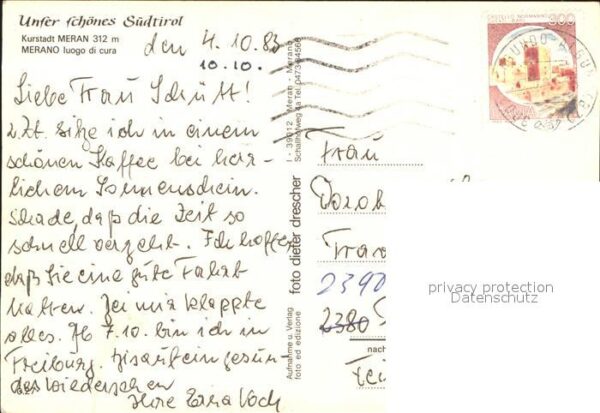 Unser schönes Südtirol
Kurstadt MERAN 312 m
MERANO luogo di cura
den 4.10.83
10.10.
Liebe Frau Schütt!
z.Zt. sitze ich in einem
schönen Kaffee bei herr-
lichem Sonnenschein.
Schade, daß die Zeit so
schnell vergeht. Ich hoffe
daß Sie eine gute Fahrt
hatten. Bei mir klappte
alles. Ab 7.10. bin ich in
Freiburg. Bis auf ein gesun-
des Wiedersehen
Ihre Erna Voch
I - 39012 - Meran - Merano
foto dieter drescher
Aufnahme u. Verlag
foto ed edizione
300
Frau
2390
2380
nach
privacy protection
Datenschutz